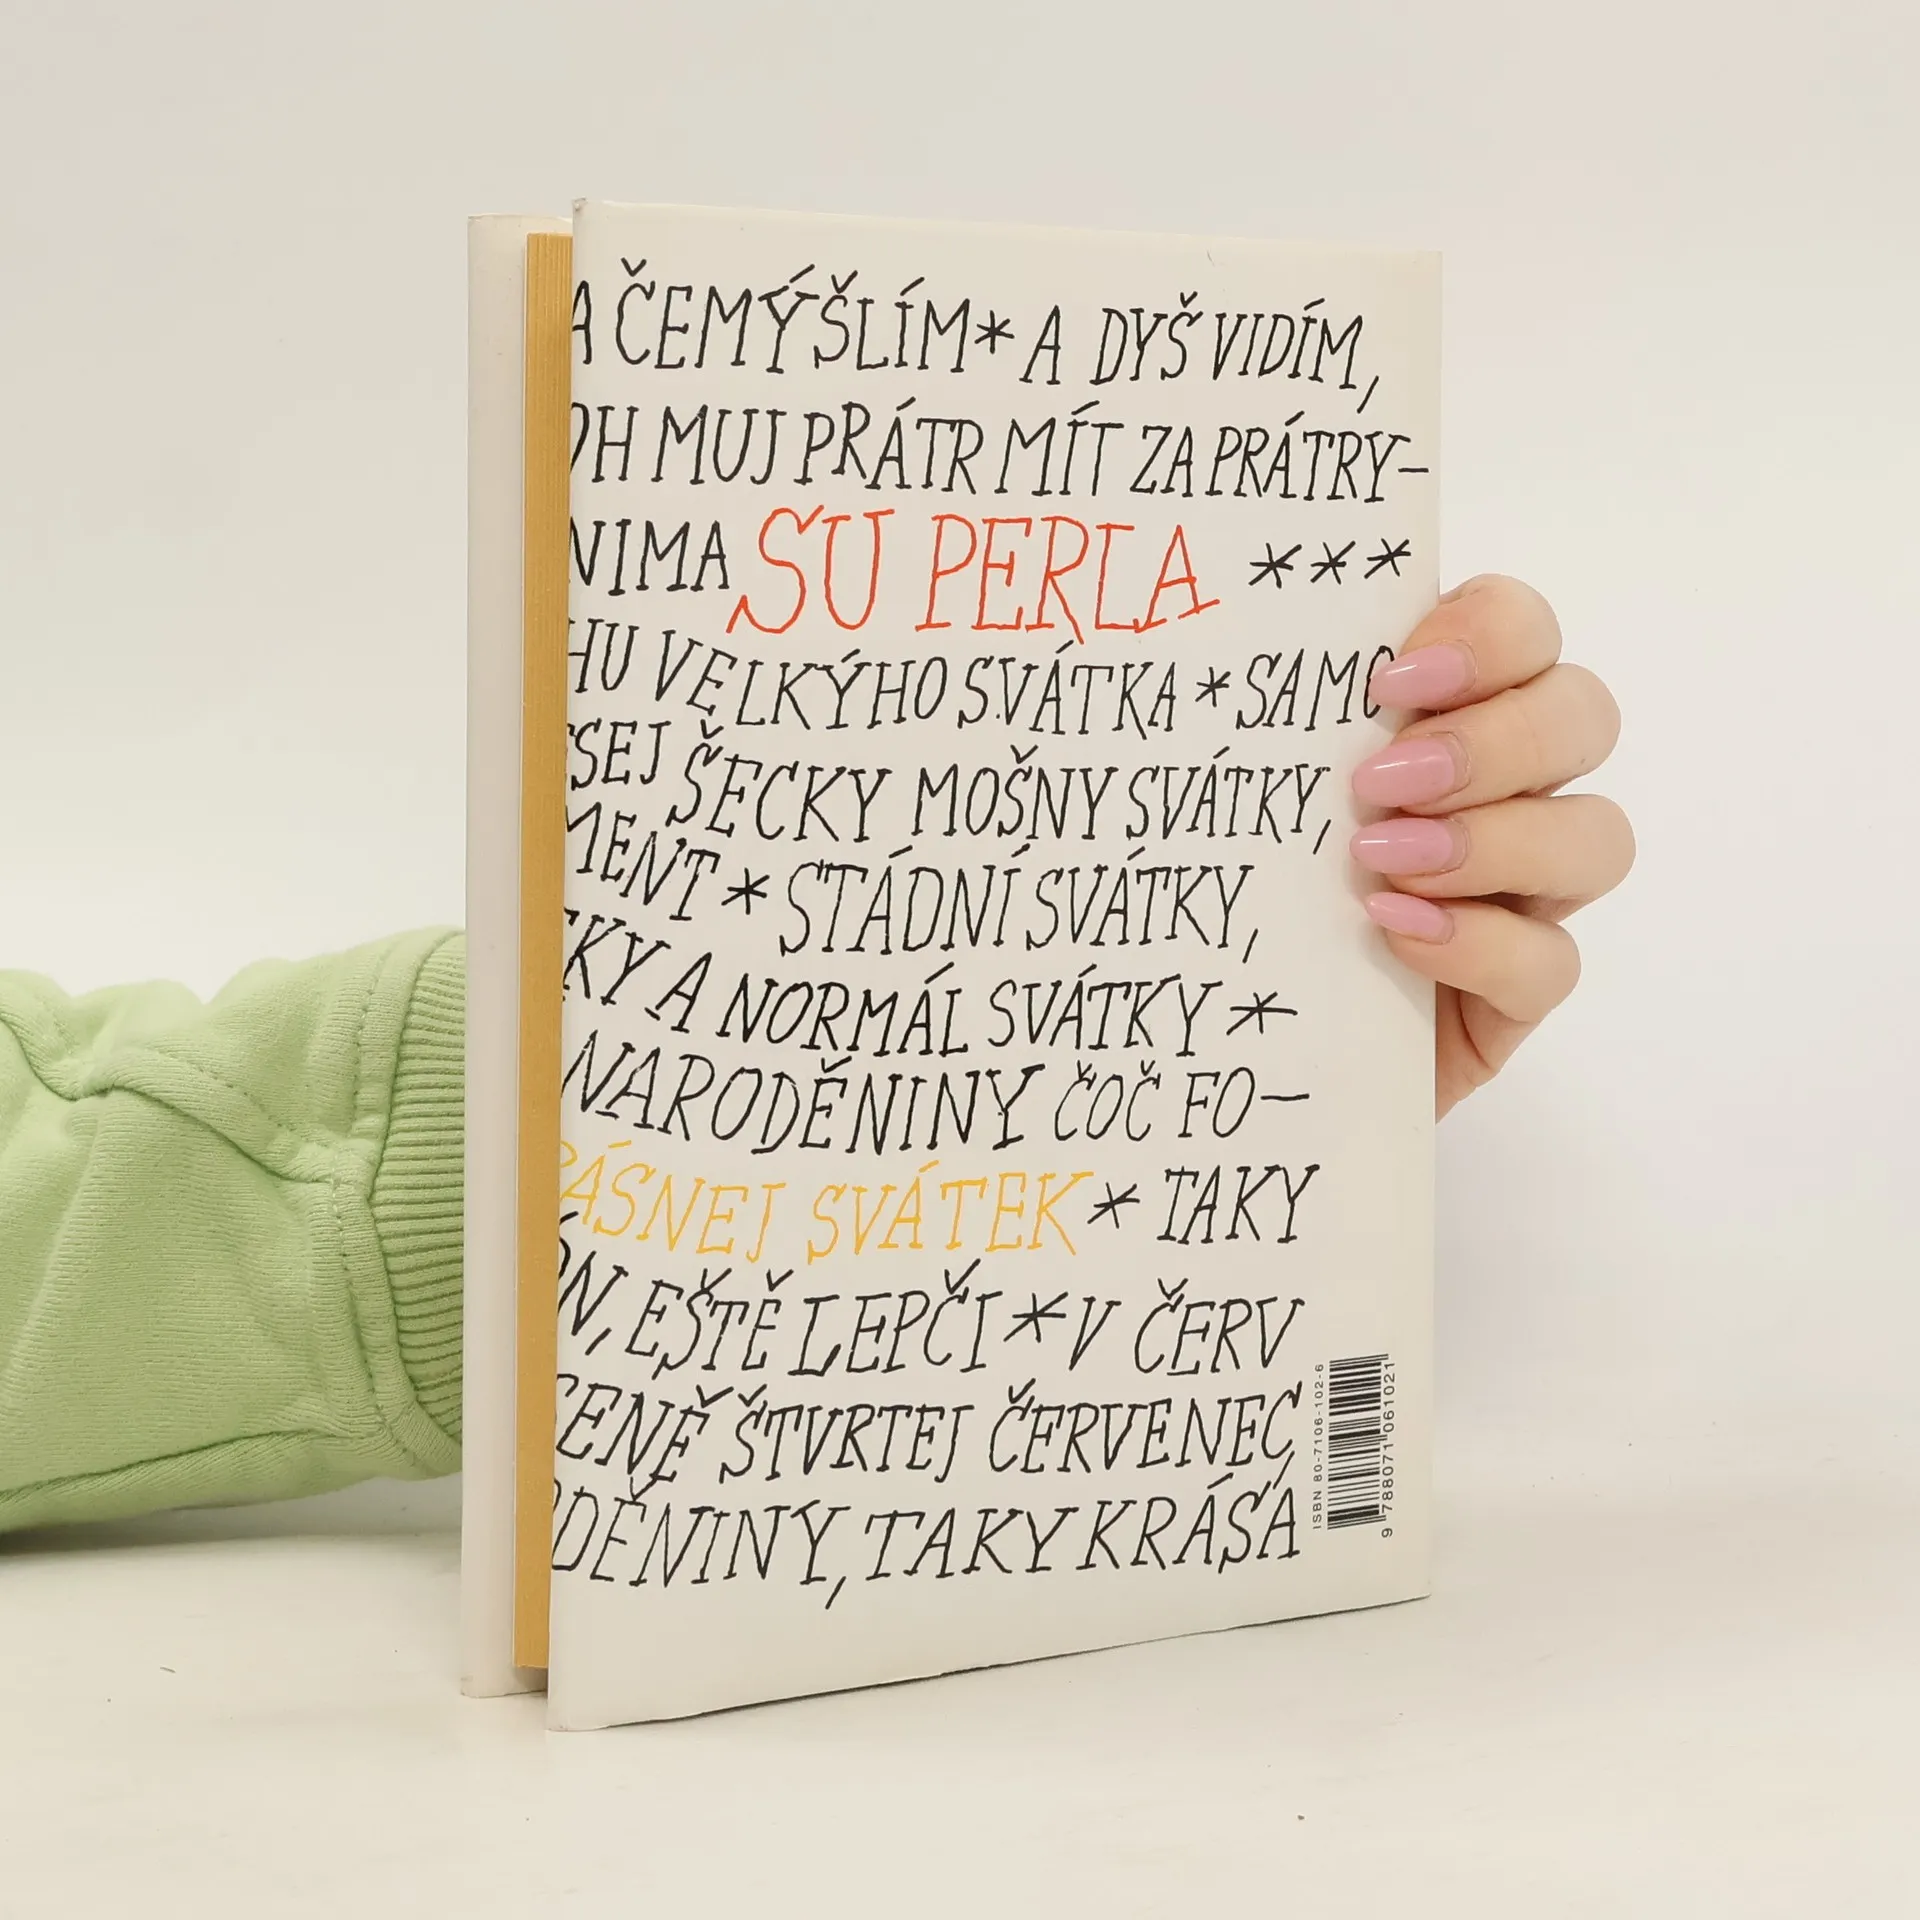 A ČEMÝŠLÍM * A DYŠ VIDÍM,
OH MUJ PRÁTR MÍT ZA PRÁTRY-
NIMA SU PERLA ***
HU VELKÝHO SVÁTKA * SAMO
SEJ ŠECKY MOŠNY SVÁTKY,
MENT * STÁDNÍ SVÁTKY,
KY A NORMÁL SVÁTKY *
NARODĚNINY ČOČ FO-
RÁSNEJ SVÁTEK * TAKY
ÓN, EŠTĚ LEPČI * V ČERV
ENĚ ŠTVRTEJ ČERVENEC,
DĚNINY, TAKY KRÁSÁ
ISBN 80-7106-102-6
9 788071 061021